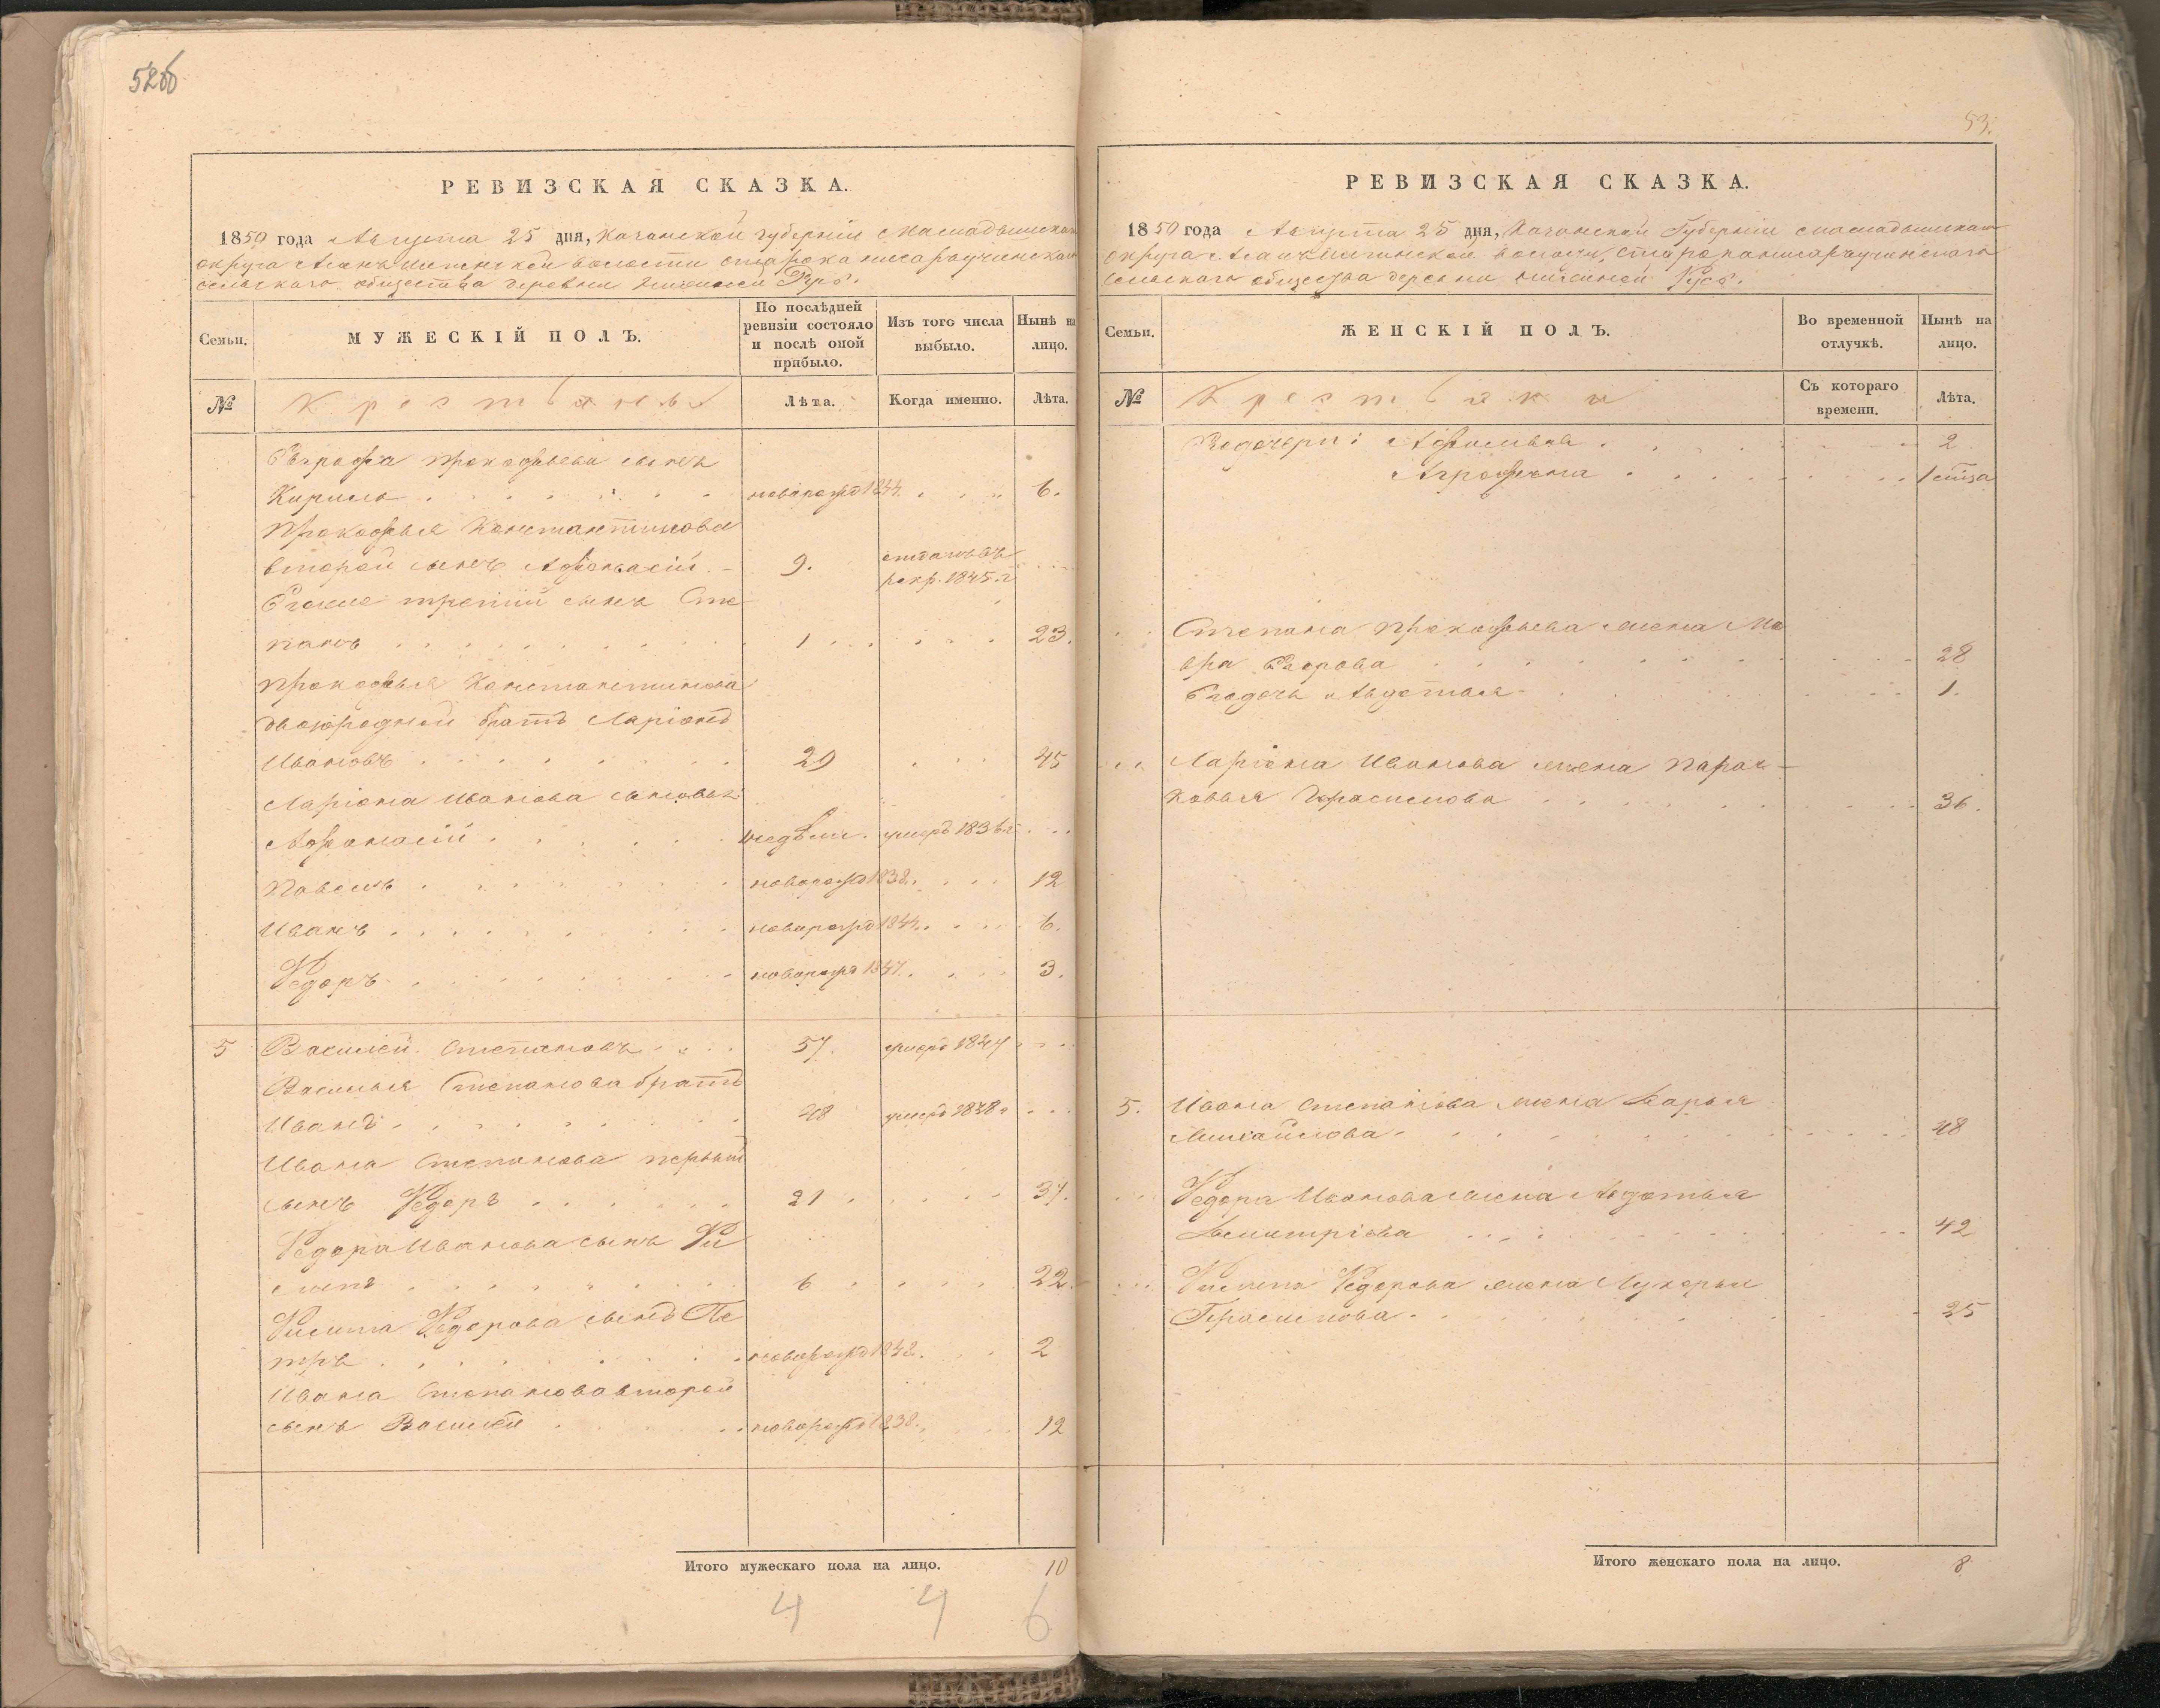 52об
РЕВИЗСКАЯ СКАЗКА.
1850 года Августа 25 дня, Казанской губернии Мамадышскаго
округа волости
сельскаго общества деревни
Семьи.
МУЖЕСКІЙ ПОЛЪ.
По послѣдней
ревизіи состояло
и послѣ оной
прибыло.
Изъ того числа
выбыло.
Нынѣ на
лицо.
№
Крестьяне
Лѣта.
Когда именно.
Лѣта.
Евграфа Прокофьева сынъ
Кирило новорожд 1844 6.
Прокофья Константинова
второй сынъ Афонасій 9. отданъ въ
рекр. 1845 г
Его же третій сынъ Сте
панъ 1 23.
Прокофья Константинова
двоюродной братъ Ларіонъ
Ивановъ 29 45
Ларіона Иванова сыновья:
Афонасій недѣли. умеръ 1836 г
Павелъ новорожд 1838 12
Иванъ новорожд 1844 6.
Ѳедоръ новорожд 1847 3.
5 Василей Степановъ 57. умеръ 1847
Василья Степанова братъ
Иванъ 48 умеръ 1838 г
Ивана Степанова первый
сынъ Ѳедоръ 21 37.
Ѳедора Иванова сынъ Фи
липъ 6 22.
Филипа Ѳедорова сынъ Пе
тръ новорожд 1848 2
Ивана Степанова второй
сынъ Василей новорожд 1838 12
Итого мужескаго пола на лицо. 10
4 4 6
53.
РЕВИЗСКАЯ СКАЗКА.
1850 года Августа 25 дня, Казанской Губерніи Мамадышскаго
округа волости,
сельскаго общества деревни
Семьи.
ЖЕНСКІЙ ПОЛЪ.
Во временной
отлучкѣ.
Нынѣ на
лицо.
№
Крестьянки
Съ котораго
времени.
Лѣта.
2
Агрофена
Степана Прокофьева жена Ма
вра Егорова 28
Его дочь Авдотья 1.
Ларіона Иванова жена Парас-
ковья Герасимова 36.
5. Ивана Степанова жена Дарья
Михайлова 48
Ѳедора Иванова жена Авдотья
Дмитріева 42
Филипа Ѳедорова жена Лукерья
Герасимова 25
Итого женскаго пола на лицо. 8